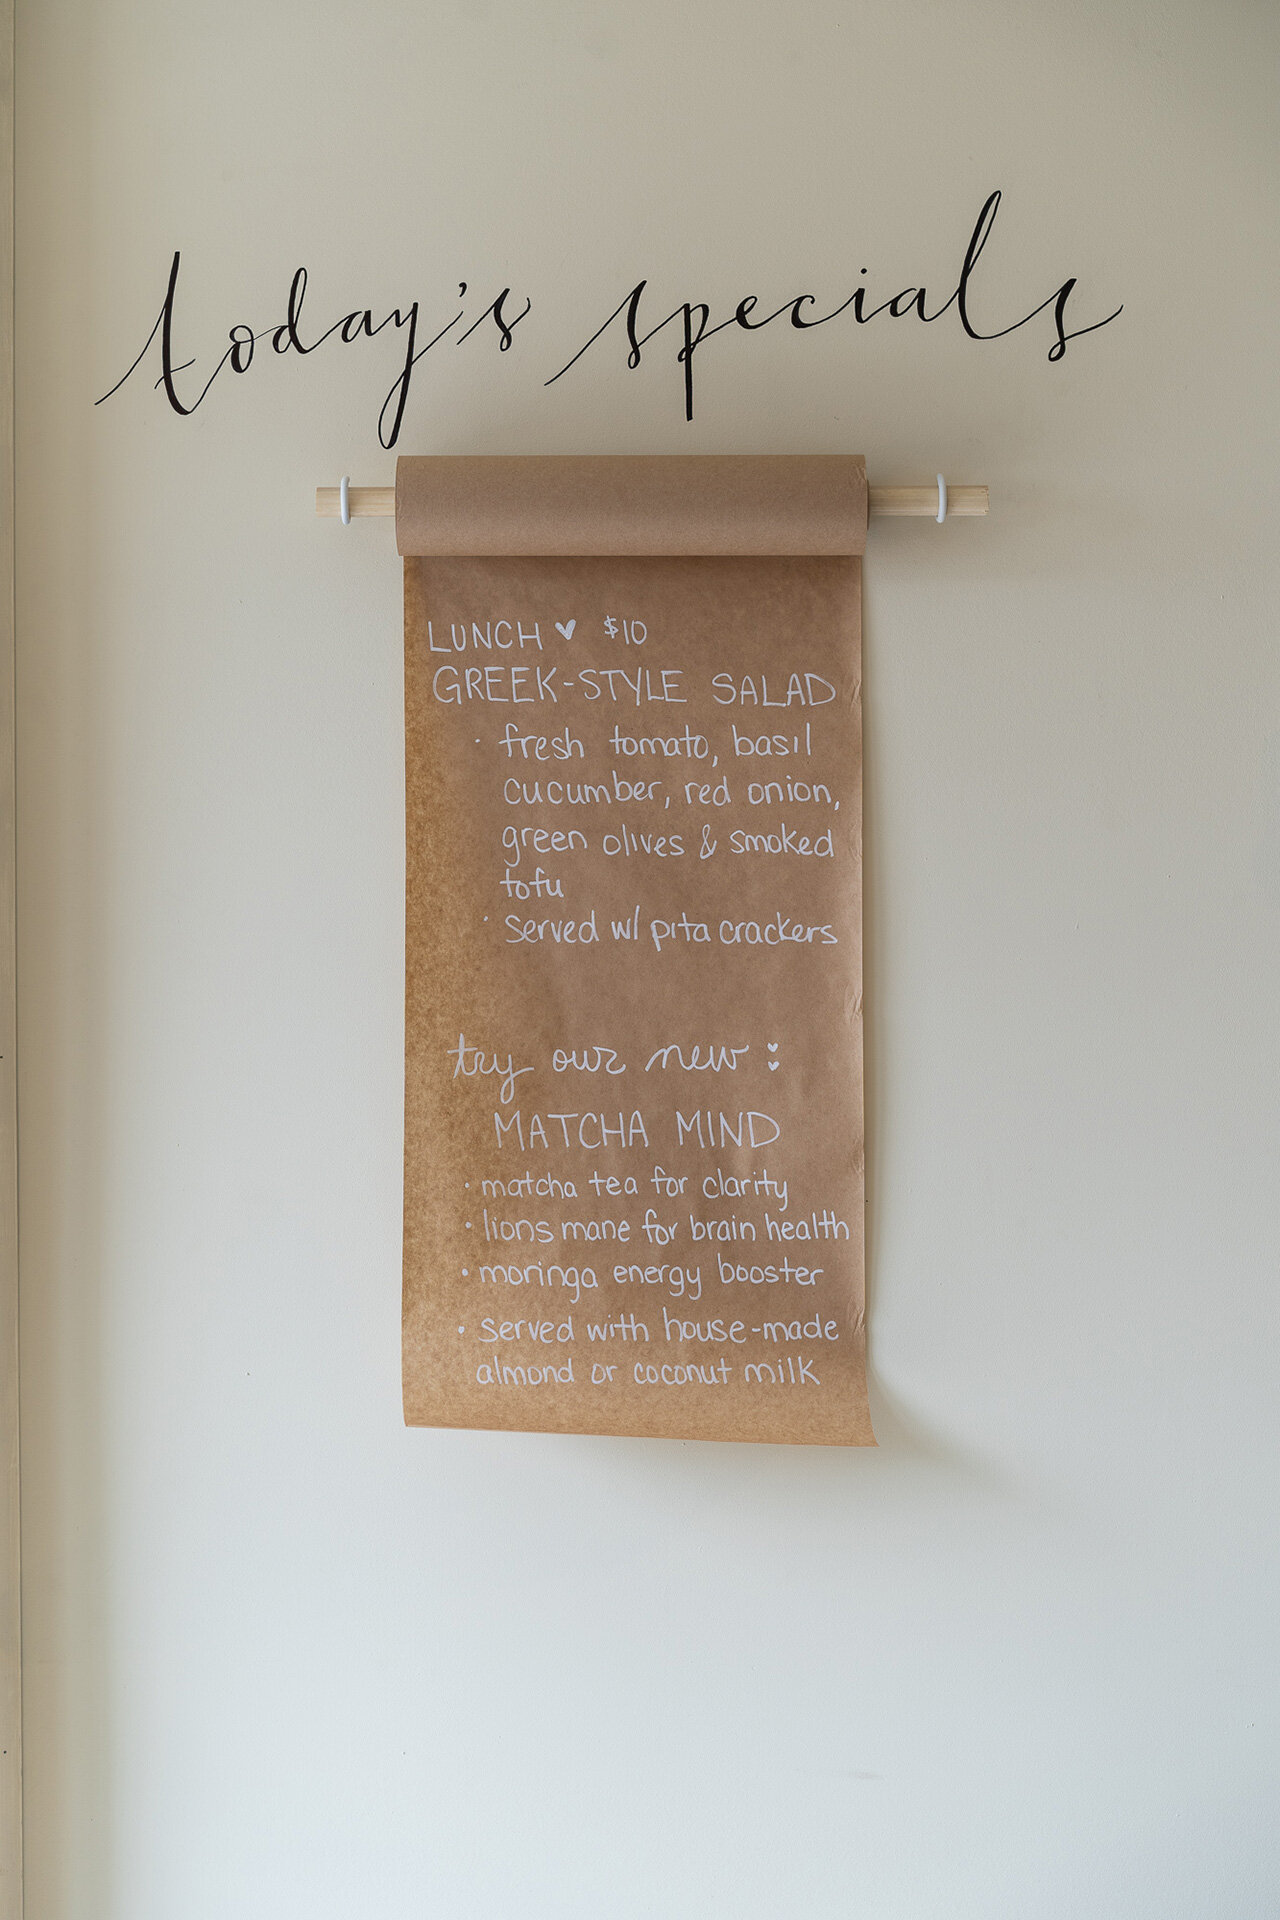 today's specials
LUNCH ♥ $10
GREEK-STYLE SALAD
· fresh tomato, basil
cucumber, red onion,
green olives & smoked
tofu
· served w/ pita crackers
try our new :
MATCHA MIND
• matcha tea for clarity
• lions mane for brain health
• moringa energy booster
• served with house-made
almond or coconut milk